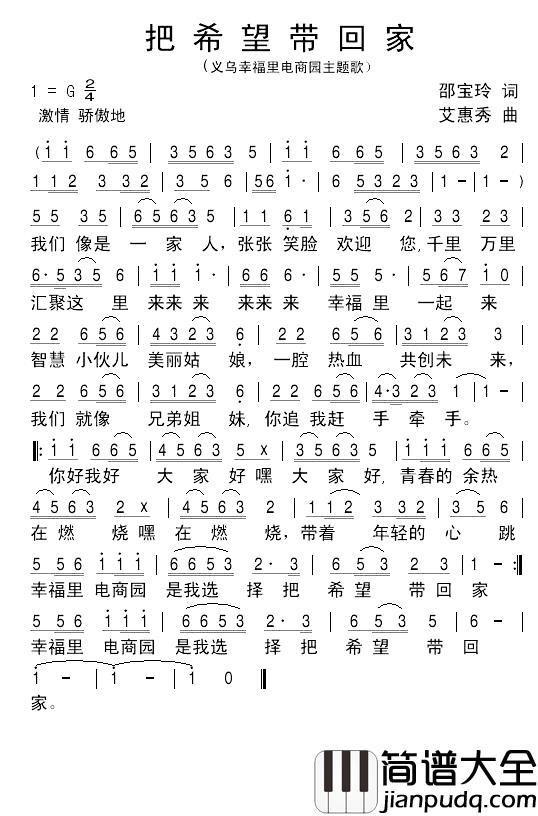 把希望带回家
（义乌幸福里电商园主题歌）
1 = G 2/4
邵宝玲 词
激情 骄傲地
艾惠秀 曲
( i i 6 65 | 3563 5 | i i 6 65 | 3563 2 |
112 323 | 2356 5 | 56 i· | 6 5323 | 1 - | 1 - )
55 35 | 65635 | 11 61 | 3562 | 23 23 |
我们 像是 一 家 人，张张 笑脸 欢迎 您，千里 万里
6·535 6 | i i i· | 66 6· | 535· | 5 567 | i 0 |
汇聚这 里 来来 来 来来 来 幸福 里 一起 来
22 656 | 4323 6 | 22 656 | 3123 3 |
智慧 小伙儿 美丽姑 娘，一腔 热血 共创未 来，
22 656 | 5323 6 | 22 656 | 4·323 1 | 1 - |
我们 就像 兄弟姐 妹，你追 我赶 手 牵 手。
‖: i i 665 | 4563 5 x | 3563 5 | i i 665 |
你好我好 大 家 好嘿 大 家 好，青春的 余热
4563 2 x | 4563 2 | 112 332 | 356 5 |
在 燃 烧嘿 在 燃 烧，带着 年轻的 心 跳
5 56 i i i | 6653 2·3 | 653 2·3 | 1 - :‖
幸福里 电商园 是我选 择把 希望 带 回 家
5 56 i i i | 6653 2·3 | 653 2·3 |
幸福里 电商园 是我选 择把 希望 带 回
1 - | 1 - | 1 0 ‖
家。
简谱大全
jianpudq.com